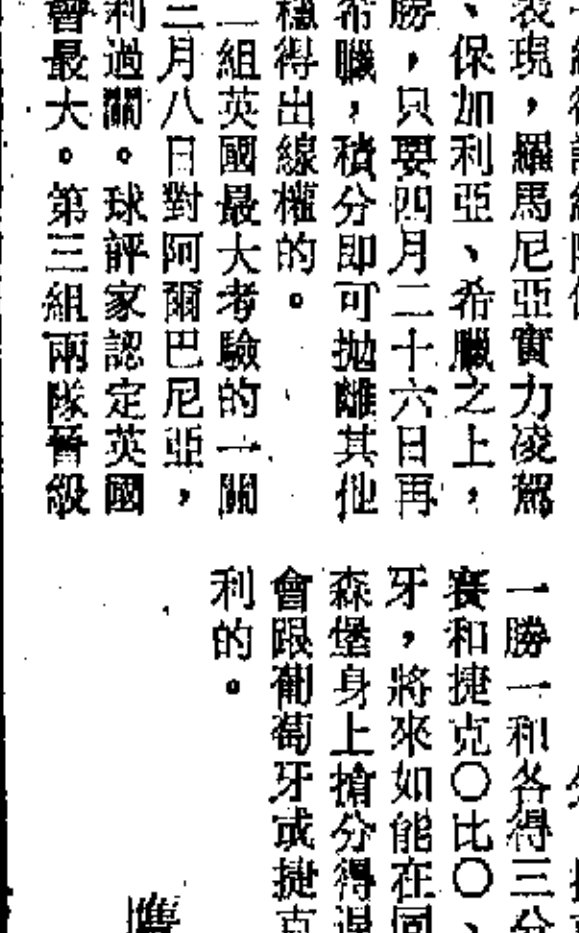 表現，羅馬尼亞實力凌駕
、保加利亞、希臘之上，
勝，只要四月二十六日再
希臘，積分即可拋離其他
穩得出線權的。
二組英國最大考驗的一關
三月八日對阿爾巴尼亞，
利過關。球評家認定英國
會最大。第三組兩隊晉級
一勝一和各得三分
賽和捷克〇比〇、
牙，將來如能在同
森堡身上搶分得
會跟葡萄牙或捷克
利的。